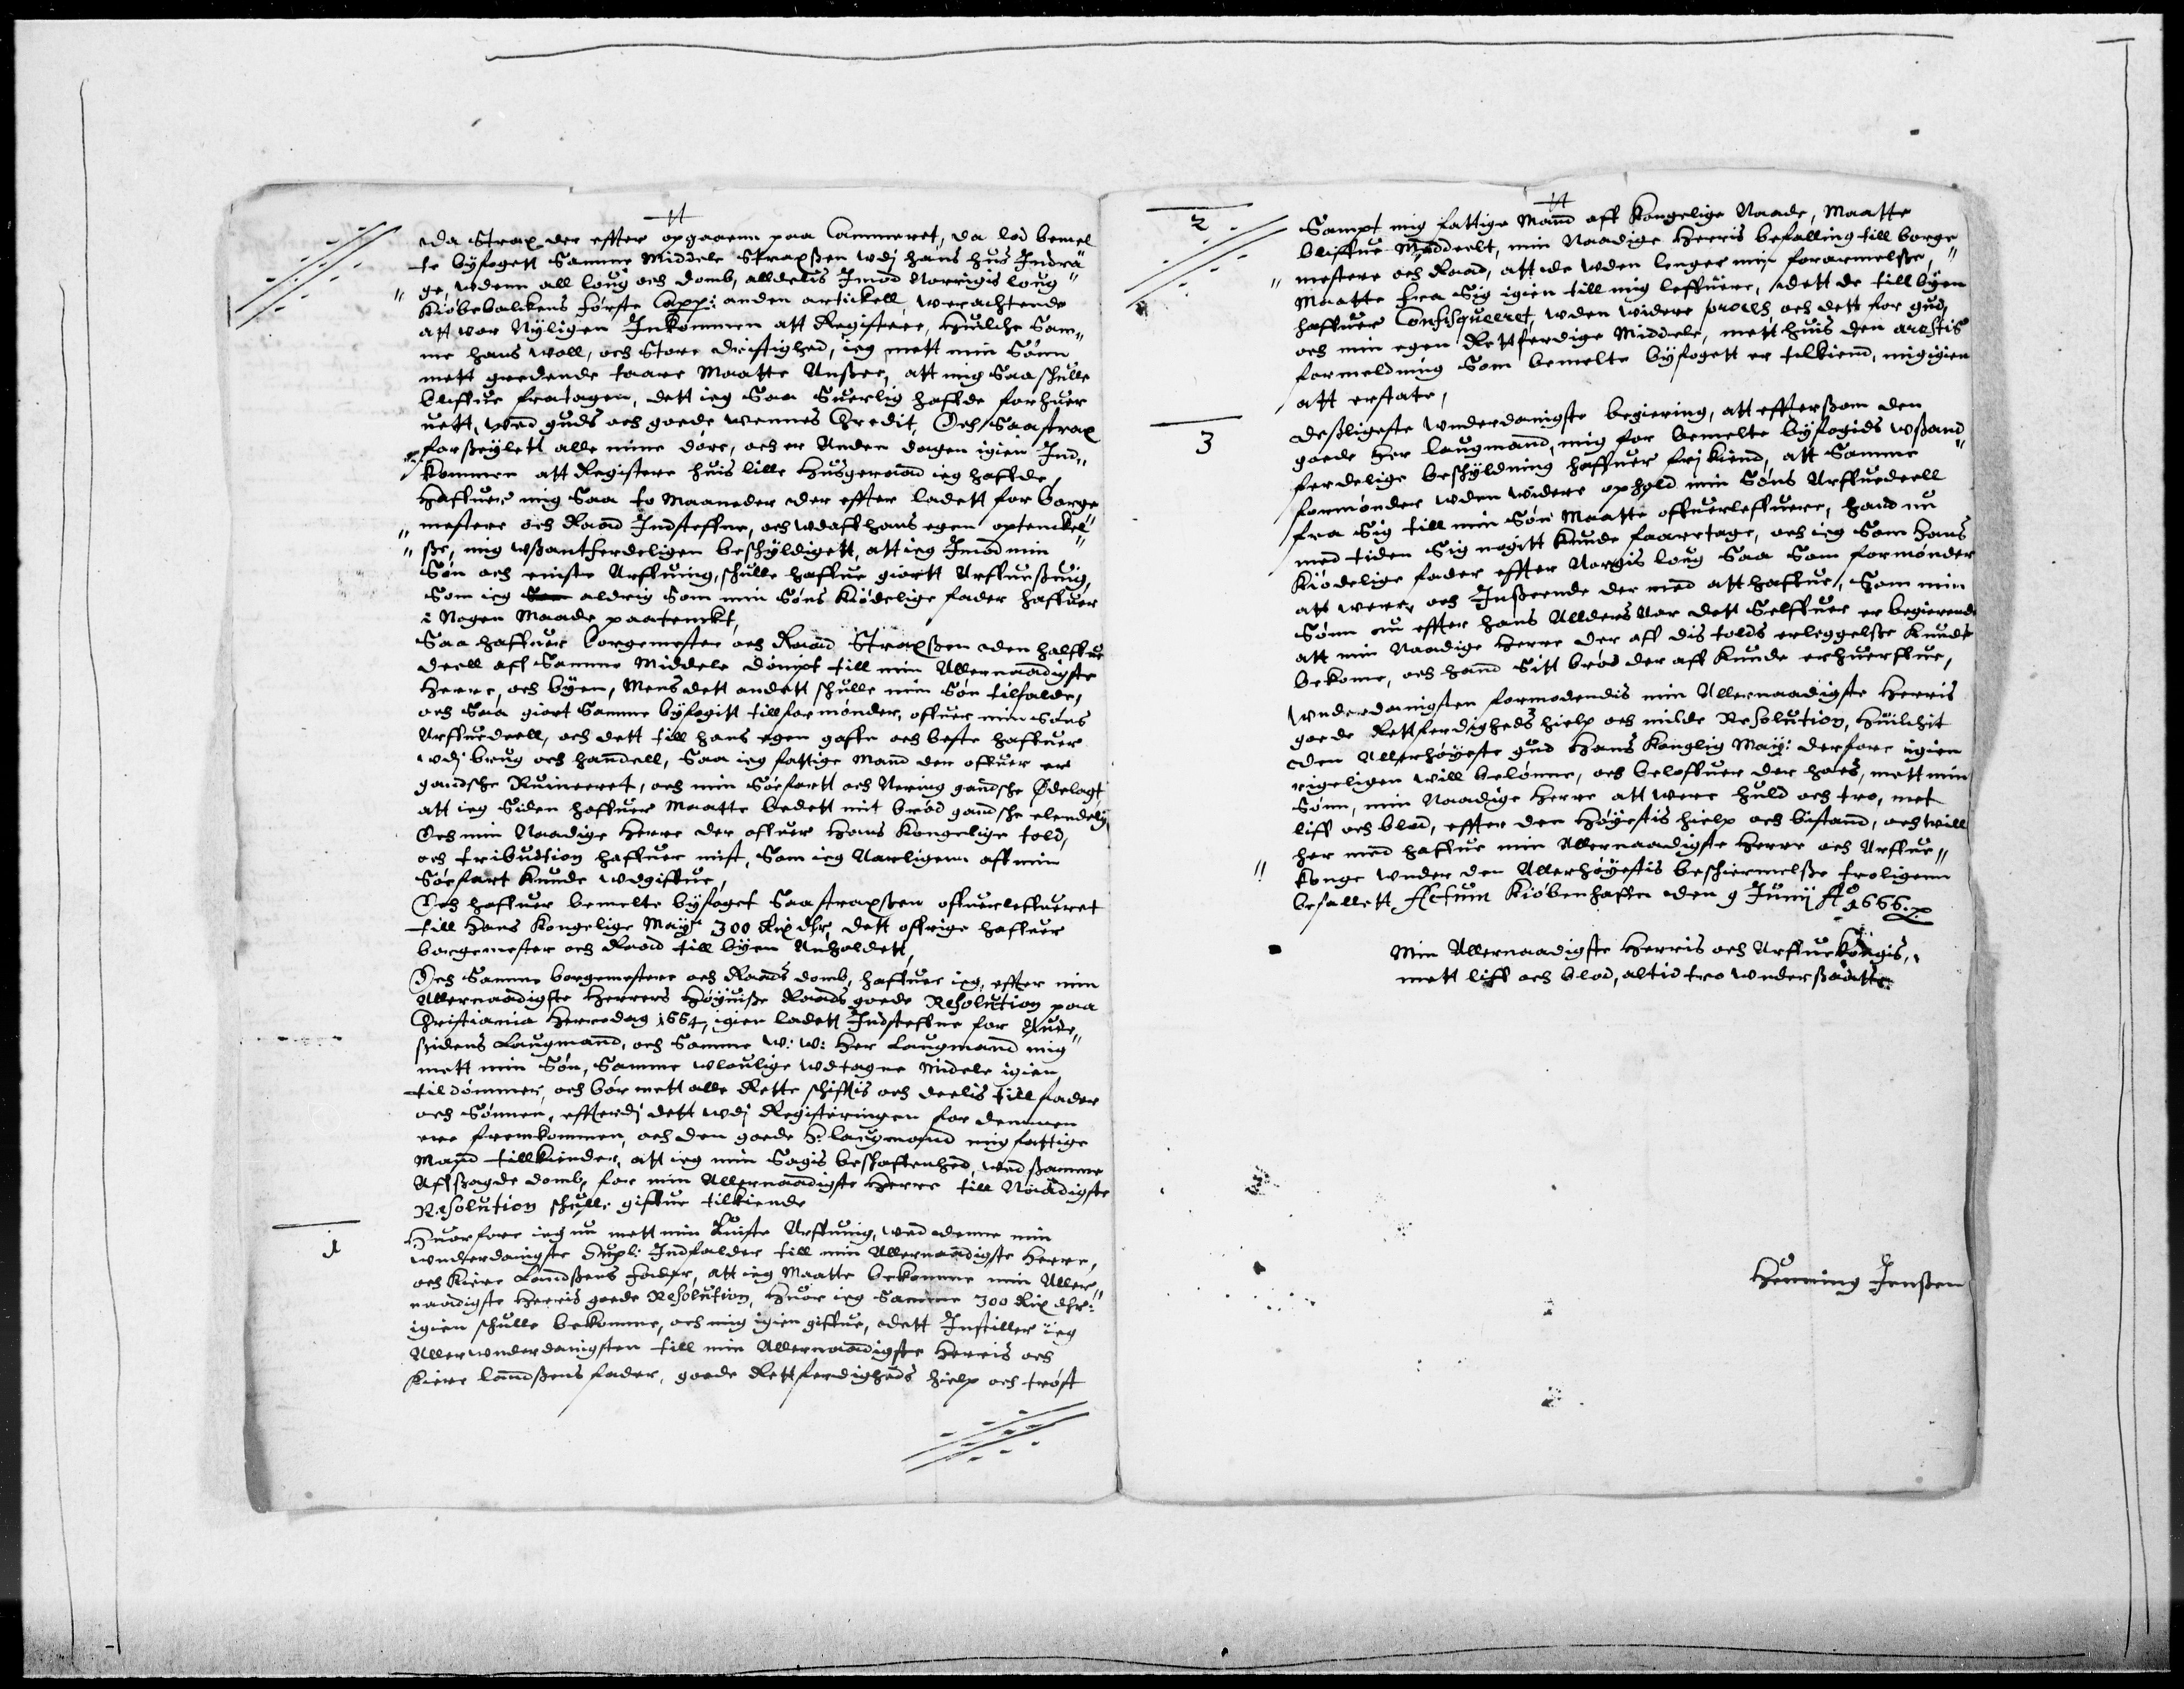 da Strax der effter opgaaenn paa Cammeret, da lod bemel
te byfogett Samme Middele Straxsßen wdj hans hus Indra
ge, wdenn all loug och domb, alldelis Imod Norrigis loug
Kiøbebalckens første Capp: anden artickell, werachtende
att war Nyligen Inkommen att Registere, Huilche Sam„
me hans woll, och Store dristighed, ieg mett min Sønn
mett grædende taare Maatte Ansee, att mig Saa schulle
bliffue fratagen, dett ieg Saa Suerlig haffde forhuer
uett, wed guds och goede wennes Credit, Och Saa strax
forseylett alle mine døre, och er Anden dagen igien Ind„
kommen att Registere huis lille Husgeraad ieg haffde,
Haffuer mig Saa to Maaneder der effter ladett for borge
mestere och Raad Indsteffne, och wdaff hans egen optenckel
ße, mig wsandferdeligen beschyldigett, att ieg Imod min
Søn och eniste Arffuing, schulle haffue giortt Arffuesuig,
Som ieg aldrig Som min Søns Kiødelige fader haffuer
i Nogen Maade paatenckt,
Saa haffuer borgemester och Raad Straxsßen den halffue
deell aff Samme Middele dømpt till min Allernaadigste
Herre, och byen, Mens dett andett schulle min Søn tilfalde,
och Saa giort Samme byfogitt till formønder, offuer min Søns
Arffuedeell, och dett till hans egen gaffn och beste haffuer
wdj brug och handell, Saa ieg fattige Mand der offuer er
gandsche Ruineeret, och min Søefartt och Nering gandsche Ødelagt
att ieg Siden haffuer Maatte bedett mit brød gandsche elendelig
Och min Naadige Herre der offuer Hans Kongelige told,
och tribudtion haffuer mist, Som ieg Aarligenn aff min
Søefart kunde wdgiffue,
Och haffuer bemelte byfoget Saa straxsen offuerleffueret
till Hans Kongelige Maytt 300 Rix dlr, dett offrige haffuer
borgemester och Raad till byen Anholdett,
Och Samme borgemestere och Raads domb, haffuer ieg, effter min
Allernaadigste Herrers Høyuiße Raads goede Resolution paa
Christiania Herredag 1664, igien ladett Indsteffne for
sidens Laugmand, och Samme W: W: Her Laugmand mig
mett min Søn, Samme wlouglige wdtagne Midele igien
tildømmer, och bør mett alle Rette schifftis och deelis till fader
och Sønnen, effterdj dett wdj Registeringen for dennem
ere fremkommen, och den goede H: laugmand mig fattige
Mand tillkiender, att ieg min Sagis beschaffenhed, wed samme
Affsagde domb, for min Allernaadigste Herre till Naadigste
Resolution schulle giffue tilkiende
1
Huorfore ieg nu mett min Arffuing, wed denne min
wnderdanigste Supl: Indfalder till min Allernaadigste Herre,
och Kiere Landsens fader, att ieg Maatte bekomme min Aller„
naadigste Herris goede Resolution, Huor ieg Samme 300 Rix dlr:
igien schulle bekomme, och mig igien giffue, dett Instiller ieg
Allerwnderdanigsten till min Allernaadigste Herris och
Kiere landsens fader, goede Rettferdigheds hielp och trøst
2
Sampt mig fattige Mand aff Kongelige Naade, Maatte
bliffue Meddeelt, min Naadige Herris befalling till borge
mestere och Raad, att de wden lenger min forarmelse,
Maatte fra Sig igien till mig leffuere, dett de till byen
haffuer Confisqueeret, wden widere proces, och dett for gud,
och min egen Rettferdige Middele, mett huis den arestis
formeldning Som bemelte byfogett er tilkiend, mig igien
att erstate,
3
Desligeste wnderdanigste begiering, att effterßom den
goede Her laugmand, mig for bemelte byfogids wsand
ferdelige beschyldning haffuer frj kiend, att Samme
formønder wden widere ophold min Søns Arffuedeell
fra Sig till min Søn Maatte offuerleffuere, hand nu
med tiden Sig nogitt kunde faaretage, och ieg Som hans
Kiødelige fader effter Norgis loug Saa Som formønder
att were, och Inseende der med att haffue, Som min
Sønn nu effter hans Allders Aar dett Selffuer er begierende
att min Naadige Herre der aff dis tolds erleggelse kunde
bekome, och hand Sitt brød der aff kunde erhuerffue,
Wnderdanigsten formodendis min Allernaadigste Herris
goede Rettferdigheds hielp och milde Resolution, Huilchit
den Allerhøyeste gud Hans Kongelig May: derfore igien
rigeligen will belønne, och beloffuer der hoes, mett min
Sønn, min Naadige Herre att were huld och tro, met
liff och blod, effter den Høyestis hielp och bistand, och will
her med haffue min Allernaadigste Herre och Arffue„
Konge wnder den Allerhøyestis beschiermelse troligenn
befallett Actum Kiøbenhaffn den 9 Junij Ao 1666.
Min Allernaadigste Herris och Arffuekongis,
mett liff och blod, altid tro wndersaatte
Henning Jenßen